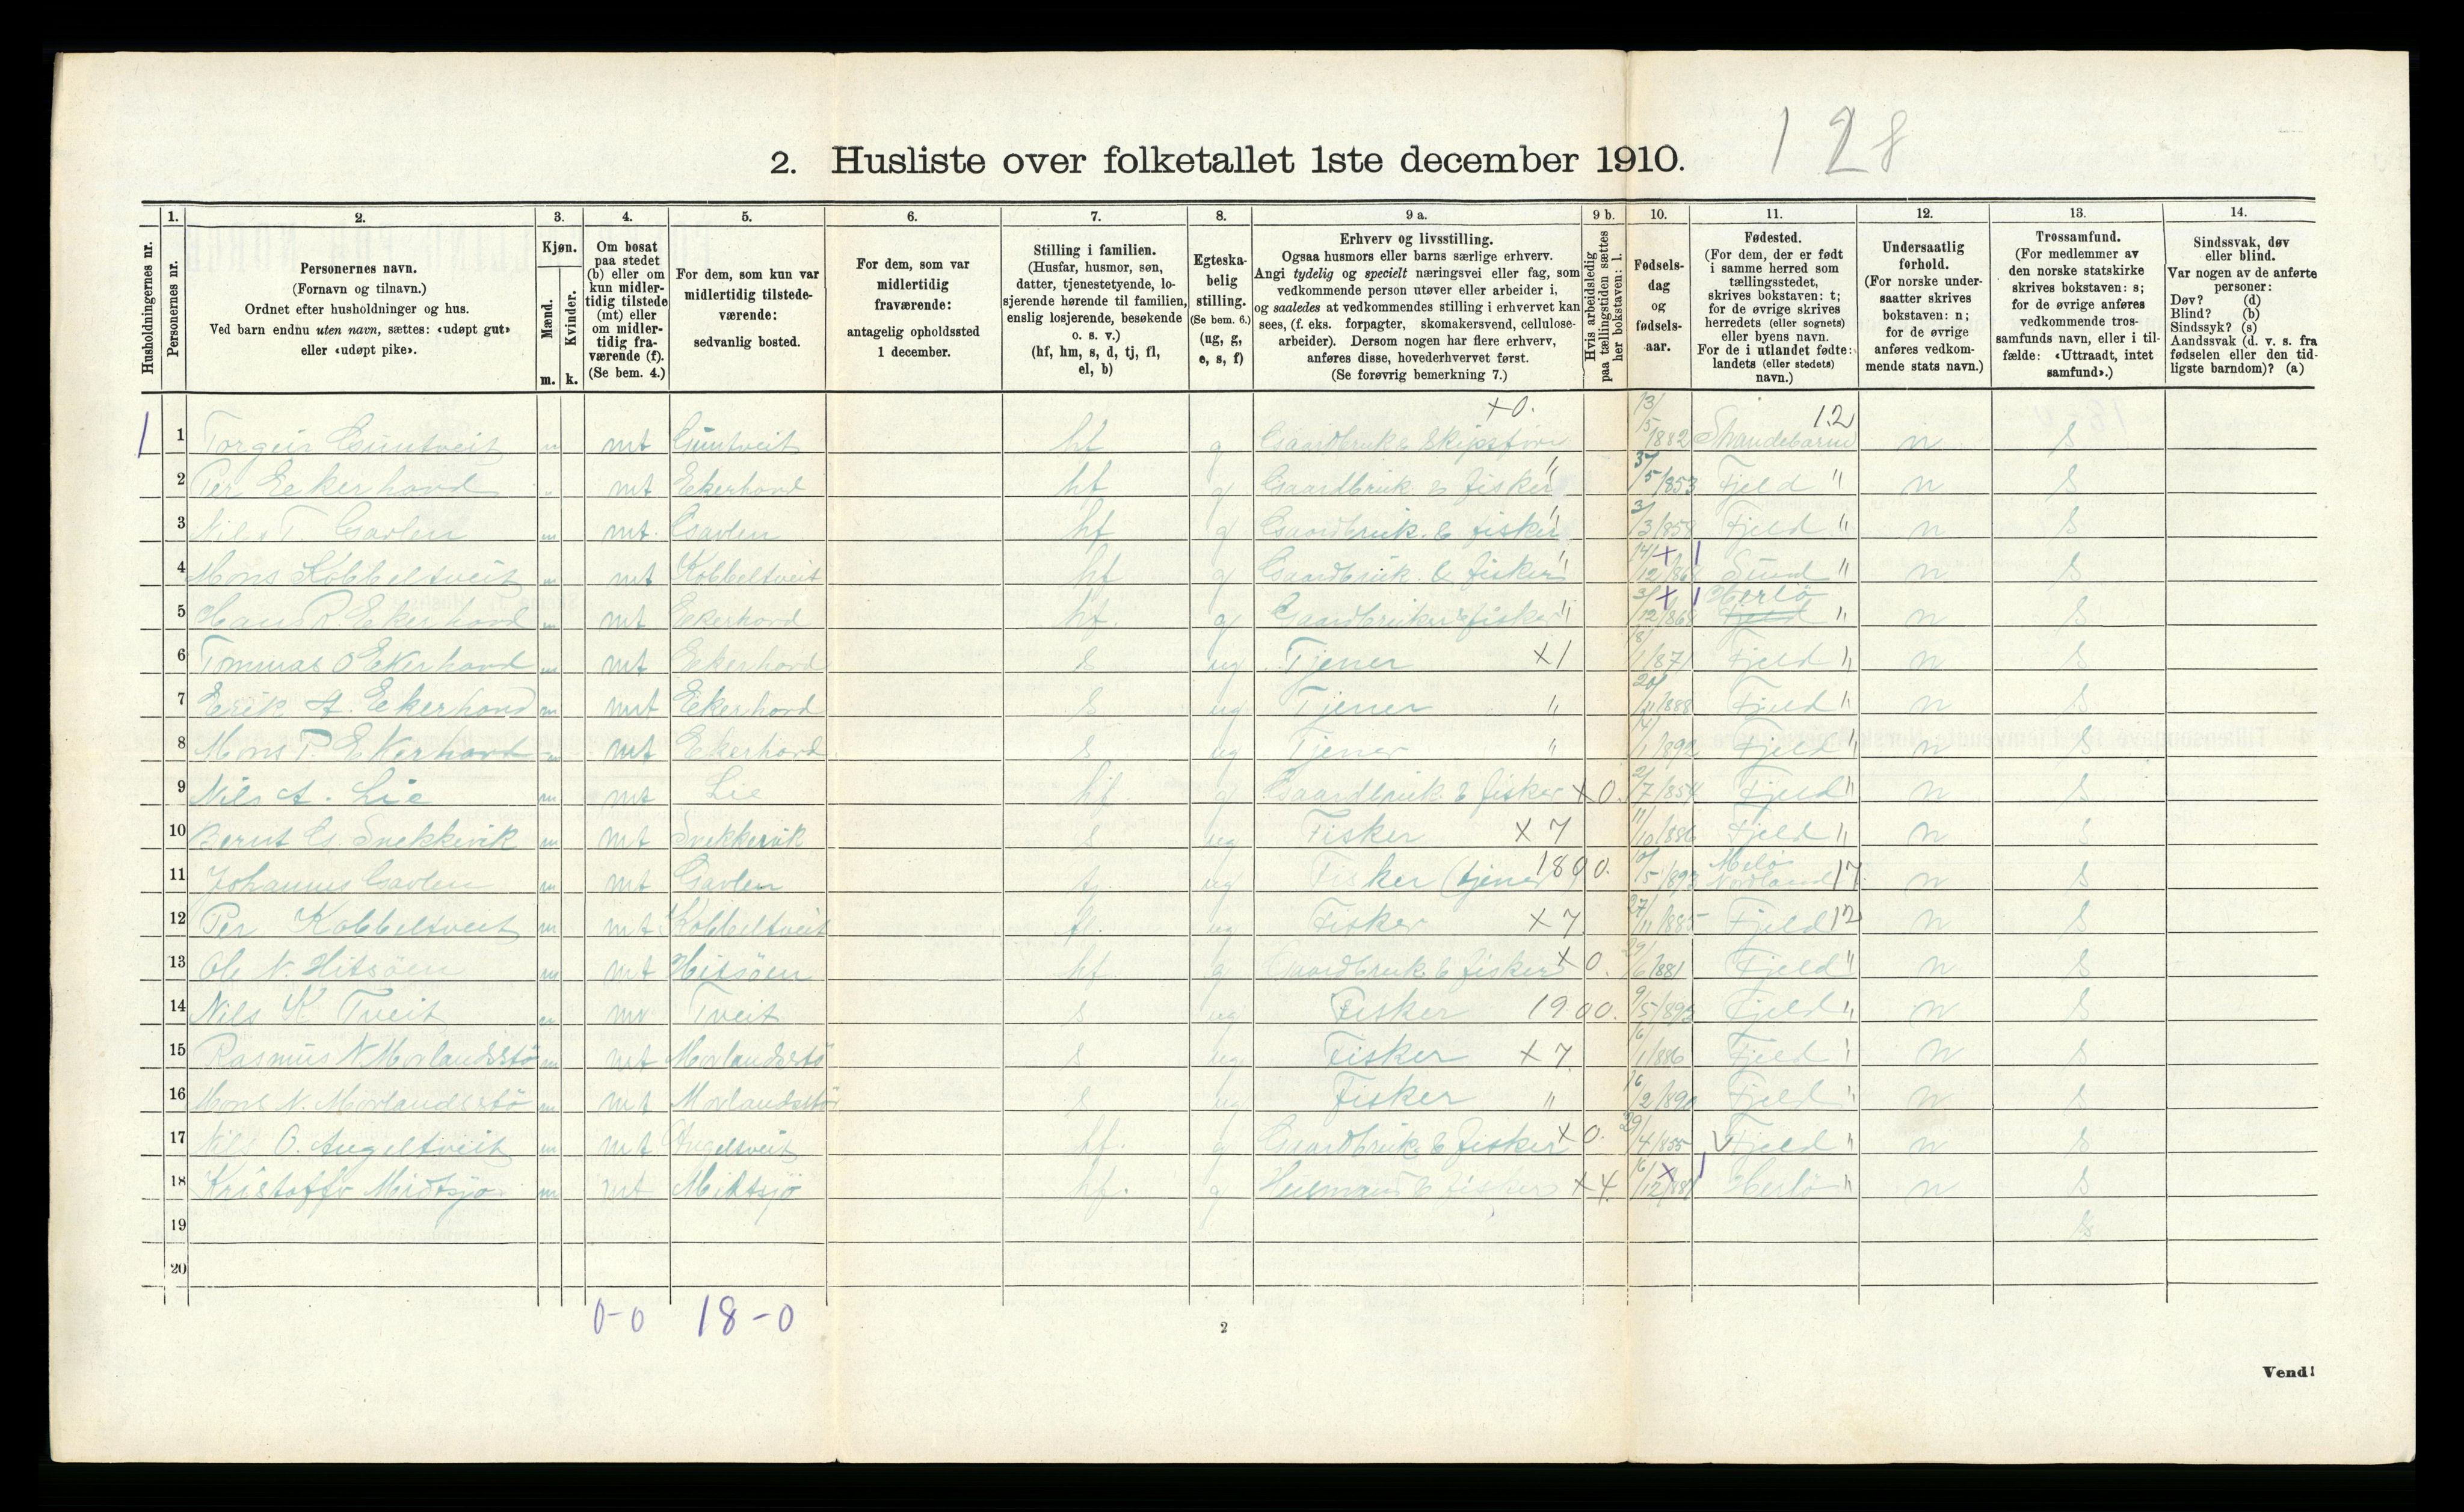 128
2. Husliste over folketallet 1ste december 1910.
Husholdningernes nr.
1. Personernes nr.
2. Personernes navn. (Fornavn og tilnavn.) Ordnet efter husholdninger og hus. Ved barn endnu uten navn, sættes: «udøpt gut» eller «udøpt pike».
3. Kjøn. Mænd. m. Kvinder. k.
4. Om bosat paa stedet (b) eller om kun midler-tidig tilstede (mt) eller om midler-tidig fra-værende (f). (Se bem. 4.)
5. For dem, som kun var midlertidig tilstede-værende: sedvanlig bosted.
6. For dem, som var midlertidig fraværende: antagelig opholdssted 1 december.
7. Stilling i familien. (Husfar, husmor, søn, datter, tjenestetyende, lo-sjerende hørende til familien, enslig losjerende, besøkende o. s. v.) (hf, hm, s, d, tj, fl, el, b)
8. Egteska-belig stilling. (Se bem. 6.) (ug, g, e, s, f)
9 a. Erhverv og livsstilling. Ogsaa husmors eller barns særlige erhverv. Angi tydelig og specielt næringsvei eller fag, som vedkommende person utøver eller arbeider i, og saaledes at vedkommendes stilling i erhvervet kan sees, (f. eks. forpagter, skomakersvend, cellulose-arbeider). Dersom nogen har flere erhverv, anføres disse, hovederhvervet først. (Se forøvrig bemerkning 7.)
9 b. Hvis arbeidsledig paa tællingstiden sættes her bokstaven: l.
10. Fødsels-dag og fødsels-aar.
11. Fødested. (For dem, der er født i samme herred som tællingsstedet, skrives bokstaven: t; for de øvrige skrives herredets (eller sognets) eller byens navn. For de i utlandet fødte: landets (eller stedets) navn.)
12. Undersaatlig forhold. (For norske under-saatter skrives bokstaven: n; for de øvrige anføres vedkom-mende stats navn.)
13. Trossamfund. (For medlemmer av den norske statskirke skrives bokstaven: s; for de øvrige anføres vedkommende tros-samfunds navn, eller i til-fælde: «Uttraadt, intet samfund».)
14. Sindssvak, døv eller blind. Var nogen av de anførte personer: Døv? (d) Blind? (b) Sindssyk? (s) Aandssvak (d. v. s. fra fødselen eller den tid-ligste barndom)? (a)
1 1 Torgeir Guntveit m mt Guntveit hf g Gaardbruk & Skipsfører +0. 13/5 1882 Strandebarm 12 n s
2 Per Eekerhovd " mt Ekerhovd hf g Gaardbruk & fisker " /5 1853 Fjeld " n s
3 Nils T. Gavlen m mt. Gavlen hf g Gaardbruk. & fisker " 3/3 1858 Fjeld " n s
4 Mons Kobbeltveit m mt Kobbeltveit hf g Gaardbruk. & fisker " 14/12 Sund " n s
5 Hans R. Ekerhovd m mt Eekerhovd hf. g Gaardbruker & fisker " 3/12 Herlö Fjeld " n s
6 Tommas O Ekerhovd m mt Eekerhovd s ug Tjener X1 8/1 1871 Fjeld " n s
7 Erik A. Ekerhovd m mt Ekerhovd s ug Tjener " 20/11 1888 Fjeld " n s
8 Mons P. Ekerhovd m mt Ekerhovd s ug Tjener " /1 1892 Fjeld " n s
9 Nils A. Lie m mt Lie hf g Gaardbruk & fisker X0. 2/7 1854 Fjeld " n s
10 Bernt G. Snekkevik m mt Snekkevik s ug Fisker X7 11/10 1886 Fjeld " n s
11 Johannes Gavlen m mt Gavlen tj. ug Fisker (tjener 1800. 10/5 1893 Melö Nordland 17. n s
12 Per Kobbeltveit m mt Kobbeltveit fl. ug Fisker X7 27/11 1885 Fjeld 12 n s
13 Ole N. Hitsöen m mt Hitsöen hf g Gaardbruk & fisker X0. 29/6 1881 Fjeld " n s
14 Nils K Tveit m mt Tveit s ug Fisker 1900. 9/5 1893 Fjeld " n s
15 Rasmus N. Morlandstö m mt Morlandstö s ug Fisker X7 6/1 1886 Fjeld " n s
16 Mons N. Morlandstö m mt Morlandstö s ug Fisker " 16/2 1890 Fjeld " n s
17 Nils O. Angeltveit m mt Angeltveit hf. g Gaardbruk & fisker X0. 29/4 1855 Fjeld " n s
18 Kristoffer Midtsjö m mt Midtsjö hf. g Husmand & fisker X4. 16/12 1881 Herlö " n s
19 s
20
0-0 18-0
2
Vend!